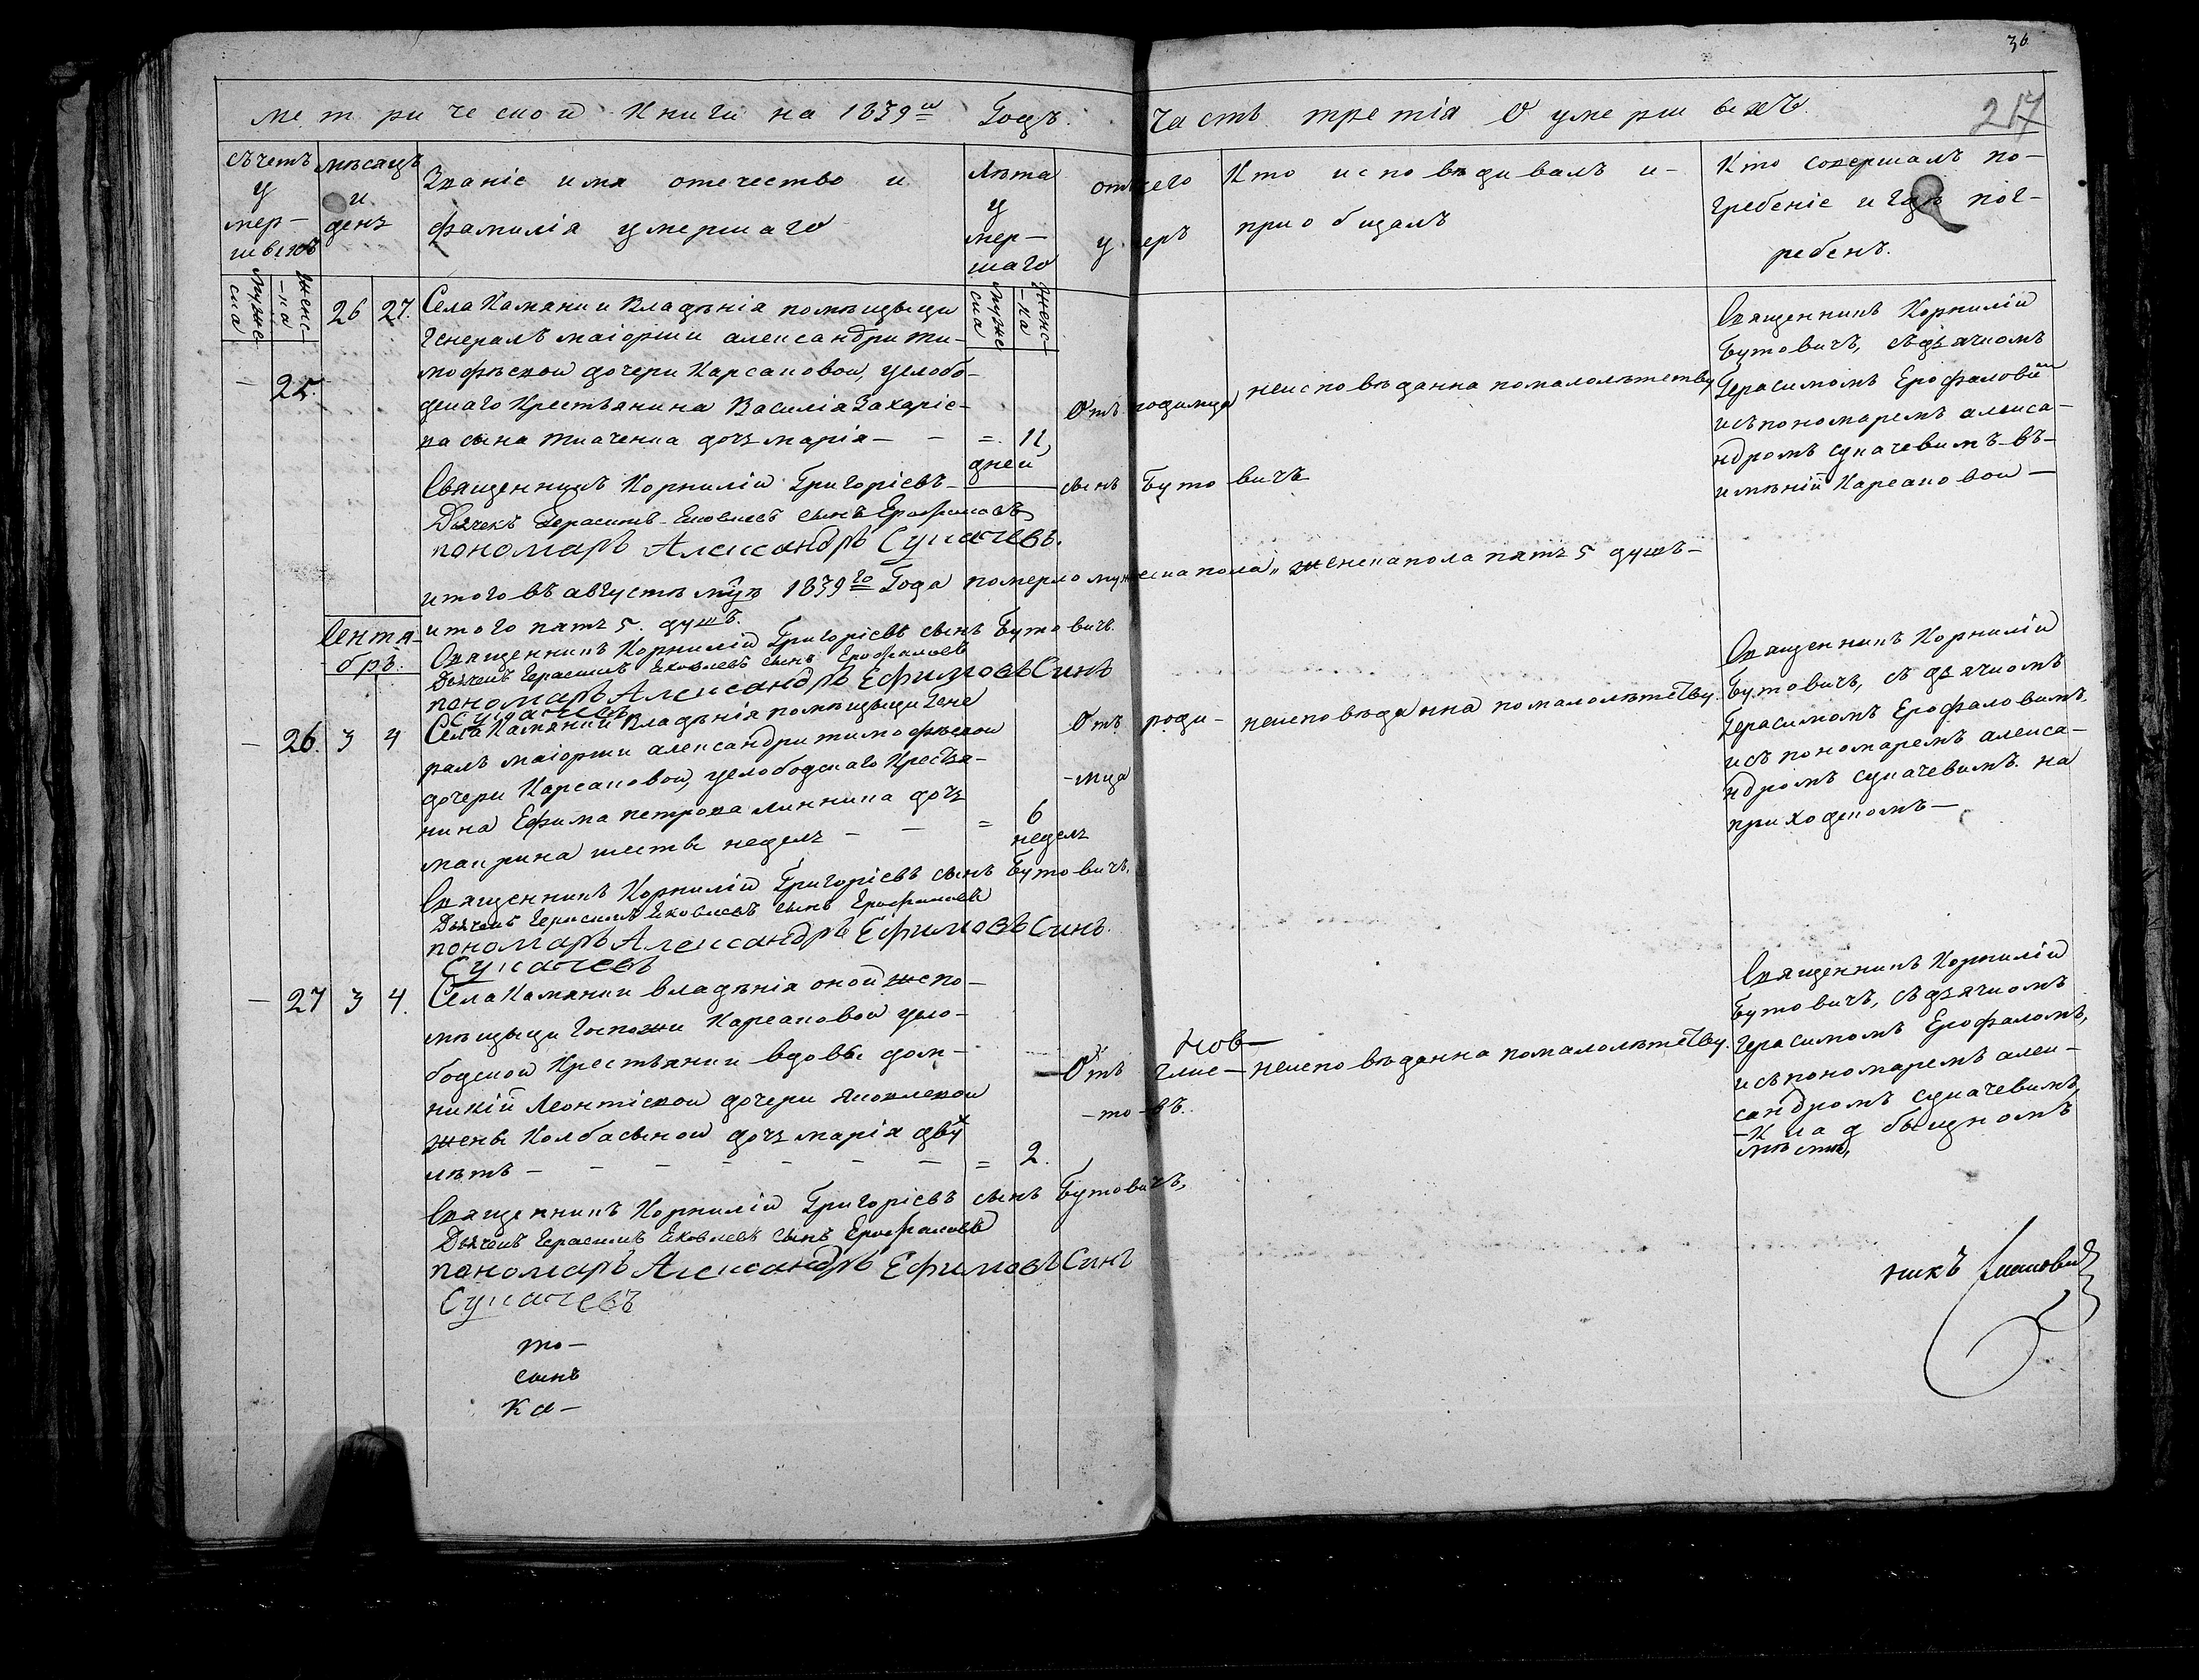 36
217
метрической книги на 1839й Годъ. Часть третія О умершвехъ.
Счетъ умершвехъ
мужеска
женска
мѣсацъ и день
Званіе имя отечество и
фамилія умершаго
Лѣта умершаго
мужеска
женска
отчего умеръ
Кто исповѣдивалъ и
приобщалъ
Кто совершалъ по-
гребеніе и гдѣ пог-
ребенъ.
– 25. 26 27.
Села Камянки Владѣнія помѣщыци
Генералъ маіорши александри ти-
мофѣевой дочери Карсаковой, услобо-
дскаго Крестьянина Василія Захаріе-
ва сына ткаченка дочь марія – – = 11,
дней
Отъ родимца
неисповѣданна помалолѣтству
Священникъ Корнилій
Бутовичъ, съ дьячкомъ
Герасимомъ Ерофаловим
исъ пономаремъ алекса-
ндромъ сукачевимъ въ-
имѣній Карсаковой –
Священникъ Корнилій Григоріевъ сынъ Бутовичъ
Дьячекъ Герасимъ Яковлевъ сынъ Ерофаловъ
пономаръ Александръ Сукачевъ.
итого въ августѣ мцѣ 1839го Года померло мужеска пола „ женска пола пять 5 душъ –
итого пять 5. душъ.
Священникъ Корнилій Григоріевъ сынъ Бутовичъ.
Дьячекъ Герасимъ Яковлевъ сынъ Ерофаловъ
пономаръ Александръ Ефимовъ Синъ
Сукачевъ
Сентя-
брь.
– 26. 3 4
Села Камянки Владѣнія помѣщыци Гене
ралъ маіорши александри тимофѣевой
дочери Карсаковой, услободскаго Крестья-
нина Ефима петрова линника дочь
макрина шесть недель – – = 6
недель
Отъ роди-
-мца
неисповѣданна помалолѣтству.
Священникъ Корнилій
Бутовичъ, съ дьячкомъ
Герасимомъ Ерофаловимъ,
исъ пономаремъ алекса-
ндромъ сукачевимъ. на
приходскомъ –
Священникъ Корнилій Григоріевъ сынъ Бутовичъ.
Дьячекъ Герасимъ Яковлевъ сынъ Ерофаловъ
пономаръ Александръ Ефимовъ Синъ.
Сукачевъ
– 27 3 4.
Села Камянки владѣнія оной же по-
мѣщыци Госпожи Карсаковой усло-
бодской Крестьянки вдовы дом-
никій Леонтіевой дочери Яковлевой
жены Колбасыной дочь марія двух
лѣтъ – – – – – – – = 2.
Отъ глис-
-то-въ.
нов–
неисповѣданна помалолѣтству.
Священникъ Корнилій
Бутовичъ, съ дьячкомъ
Герасимомъ Ерофаломъ,
исъ пономаремъ алек-
сандромъ сукачевимъ,
-К лад быщномъ
мѣстѣ,
Священникъ Корнилій Григоріевъ сынъ Бутовичъ,
Дьячекъ Герасимъ Яковлевъ сынъ Ерофаловъ
пономаръ Александръ Ефимовъ Синъ
Сукачевъ
то–
сынъ
Ка–
никъ